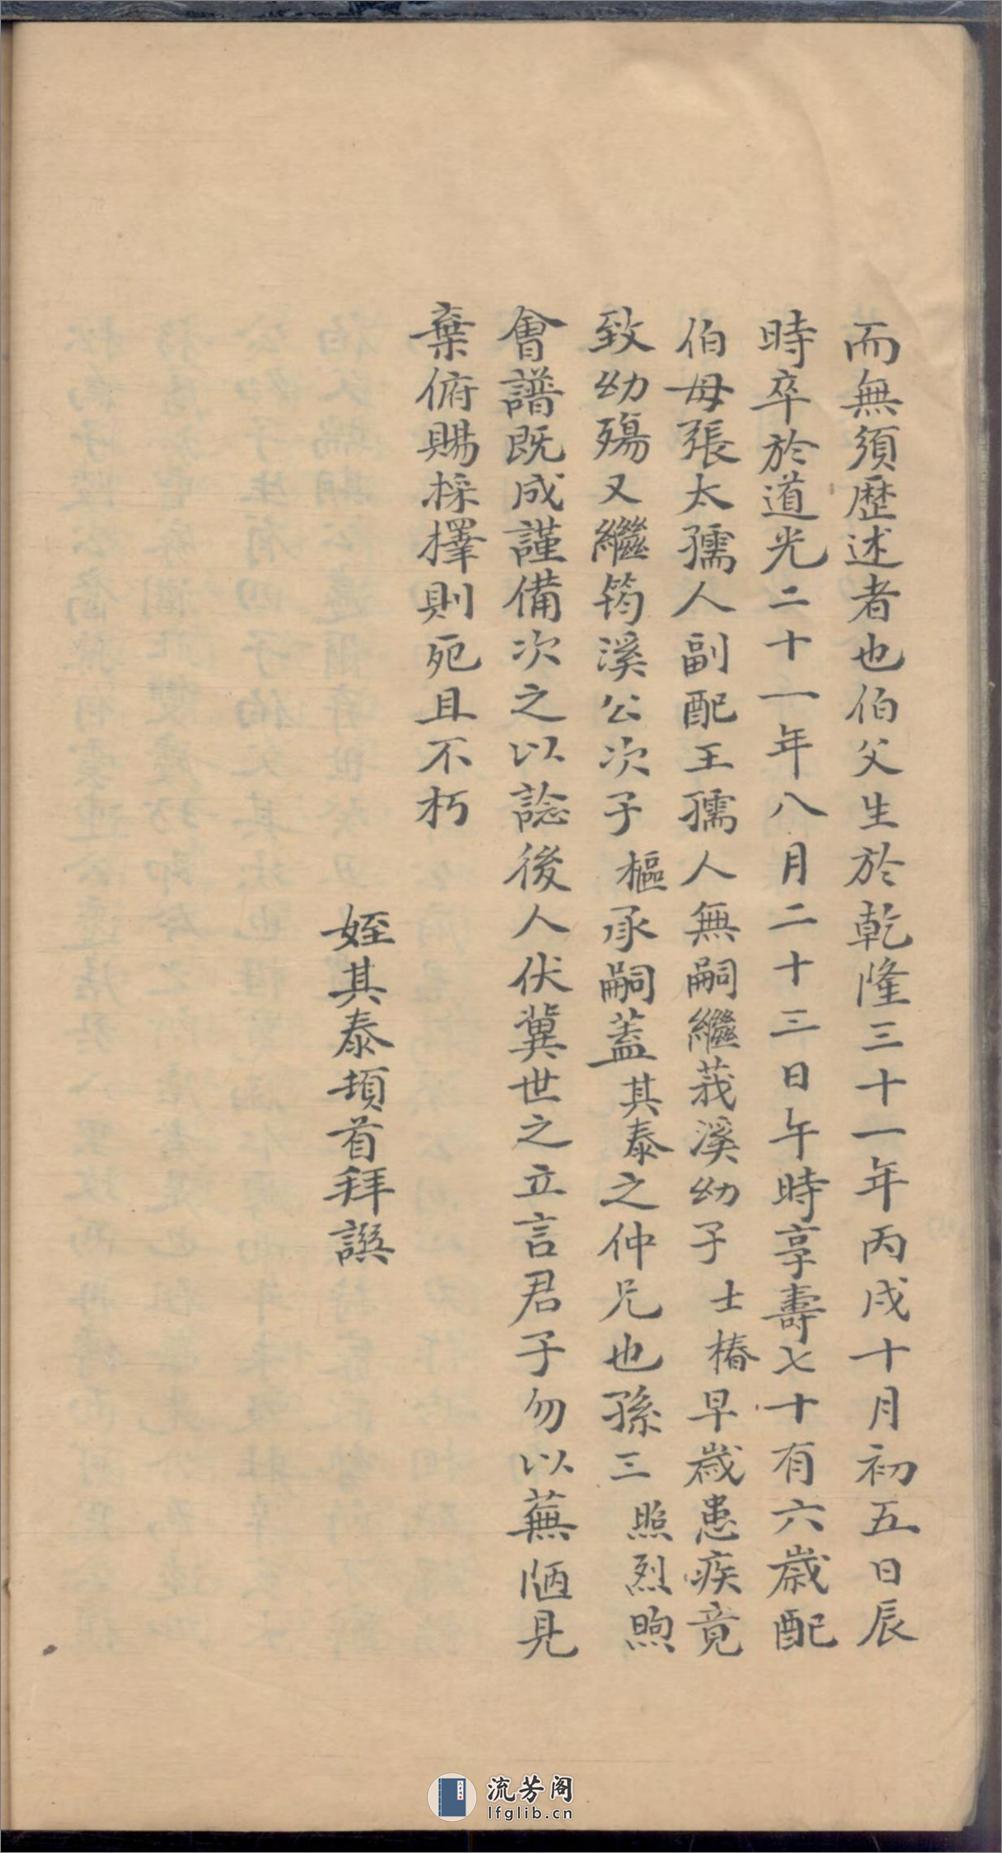 而無須歷述者也伯父生於乾隆三十一年丙戌十月初五日辰
時卒於道光二十一年八月二十三日午時享壽七十有六歲配
伯母張太孺人副配王孺人無嗣繼莪溪幼子士椿早歲患疾竟
致幼殤又繼筠溪公次子樞承嗣蓋其泰之仲兄也孫三照烈煦
會譜既成謹備次之以諗後人伏冀世之立言君子勿以蕪陋見
棄俯賜採擇則死且不朽
姪其泰頓首拜譔
流芳阁
lfglib.cn